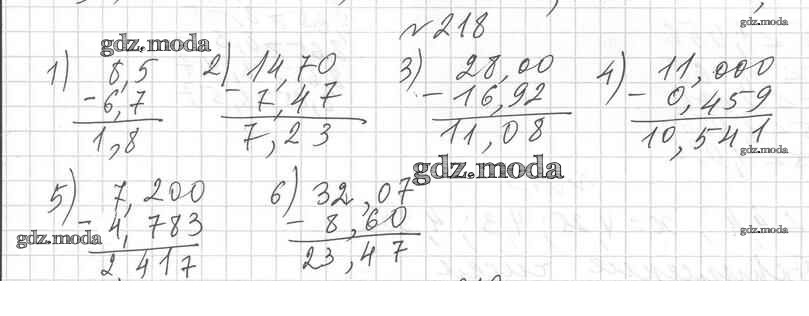 №218
gdz.moda
gdz.moda
1) 8,5 2) 14,70 3) 28,00 4) 11,000
- 6,7 - 7,47 - 16,92 - 0,459
1,8 7,23 11,08 10,541
gdz.moda
gdz.moda
5) 7,200 6) 32,07
- 4,783 - 8,60
gdz.moda
gdz.moda
2,417 23,47